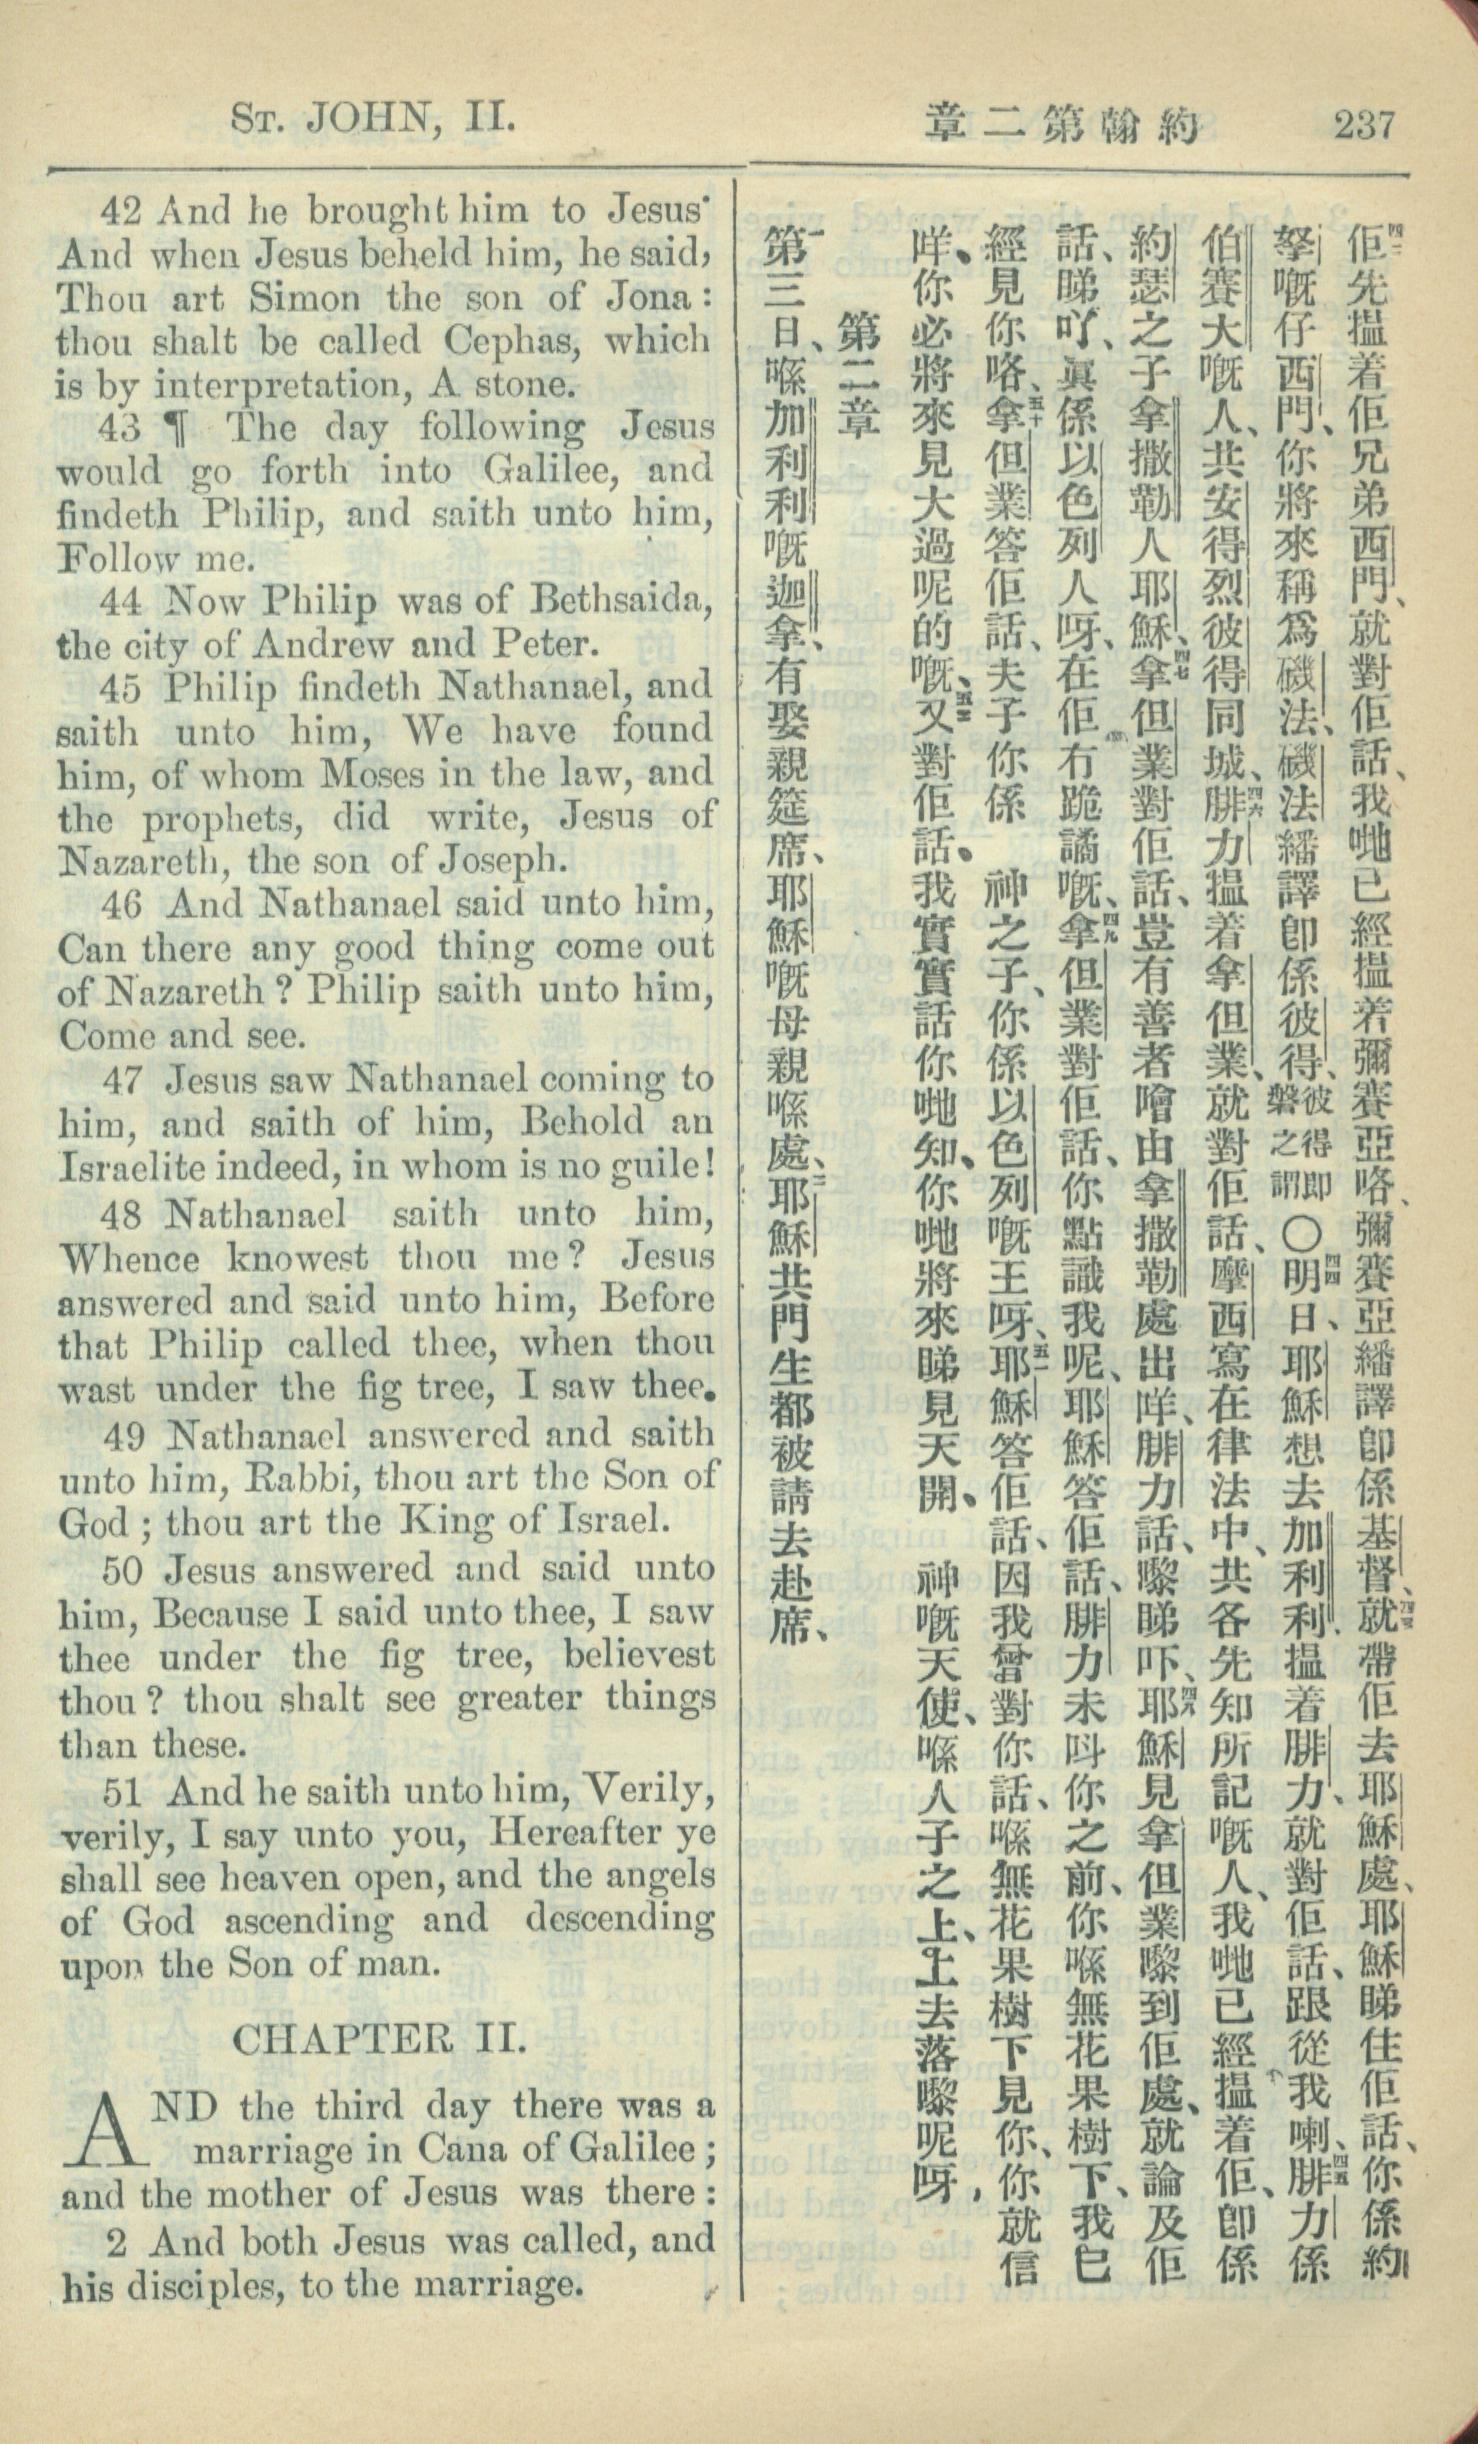 St. JOHN, II.
章二第翰約
237
42 And he brought him to Jesus·
And when Jesus beheld him, he said,
Thou art Simon the son of Jona:
thou shalt be called Cephas, which
is by interpretation, A stone.
43 ¶ The day following Jesus
would go forth into Galilee, and
findeth Philip, and saith unto him,
Follow me.
44 Now Philip was of Bethsaida,
the city of Andrew and Peter.
45 Philip findeth Nathanael, and
saith unto him, We have found
him, of whom Moses in the law, and
the prophets, did write, Jesus of
Nazareth, the son of Joseph.
46 And Nathanael said unto him,
Can there any good thing come out
of Nazareth? Philip saith unto him,
Come and see.
47 Jesus saw Nathanael coming to
him, and saith of him, Behold an
Israelite indeed, in whom is no guile!
48 Nathanael saith unto him,
Whence knowest thou me? Jesus
answered and said unto him, Before
that Philip called thee, when thou
wast under the fig tree, I saw thee.
49 Nathanael answered and saith
unto him, Rabbi, thou art the Son of
God; thou art the King of Israel.
50 Jesus answered and said unto
him, Because I said unto thee, I saw
thee under the fig tree, believest
thou? thou shalt see greater things
than these.
51 And he saith unto him, Verily,
verily, I say unto you, Hereafter ye
shall see heaven open, and the angels
of God ascending and descending
upon the Son of man.
CHAPTER II.
AND the third day there was a
marriage in Cana of Galilee;
and the mother of Jesus was there:
2 And both Jesus was called, and
his disciples, to the marriage.
四二佢先揾着佢兄弟西門、就對佢話、我哋已經揾若彌賽亞咯、彌賽亞繙譯卽係基督、四三就帶佢去耶穌處、耶穌睇住佢話、你係約
拏嘅仔西門、你將來稱爲磯法、磯法繙譯卽係彼得、彼得即磐之謂〇四四明日、耶穌想去加利利、揾着腓力、就對佢話、跟從我喇、四五腓力係
伯賽大嘅人、共安得烈彼得同城、四六腓力揾着拿但業、就對佢話、摩西寫在律法中、共各先知所記嘅人、我哋已經揾着佢、卽係
約瑟之子拿撒勒人耶穌、四七拿但業對佢話、豈有善者噲由拿撒勒處出咩、腓力話、嚟睇吓、四八耶穌見拿但業嚟到佢處、就論及佢
話、睇吖、眞係以色列人呀、在佢冇跪譎嘅、四九拿但業對佢話、你點識我呢、耶穌答佢話、腓力未呌你之前、你喺無花果樹下、我已
經見你咯、五十拿但業答佢話、夫子你係 神之子、你係以色列嘅王呀、五一耶穌答佢話、因我曾對你話、喺無花果樹下見你、你就信
咩、你必將來見大過呢的嘅、五二又對佢話、我實實話你哋知、你哋將來睇見天開、 神嘅天使、喺人子之上、上去落嚟呢呀,
第二章
一第三日、喺加利利嘅迦拿、有娶親筵席、耶穌嘅母親喺處、二耶穌共門生都被請去赴席、